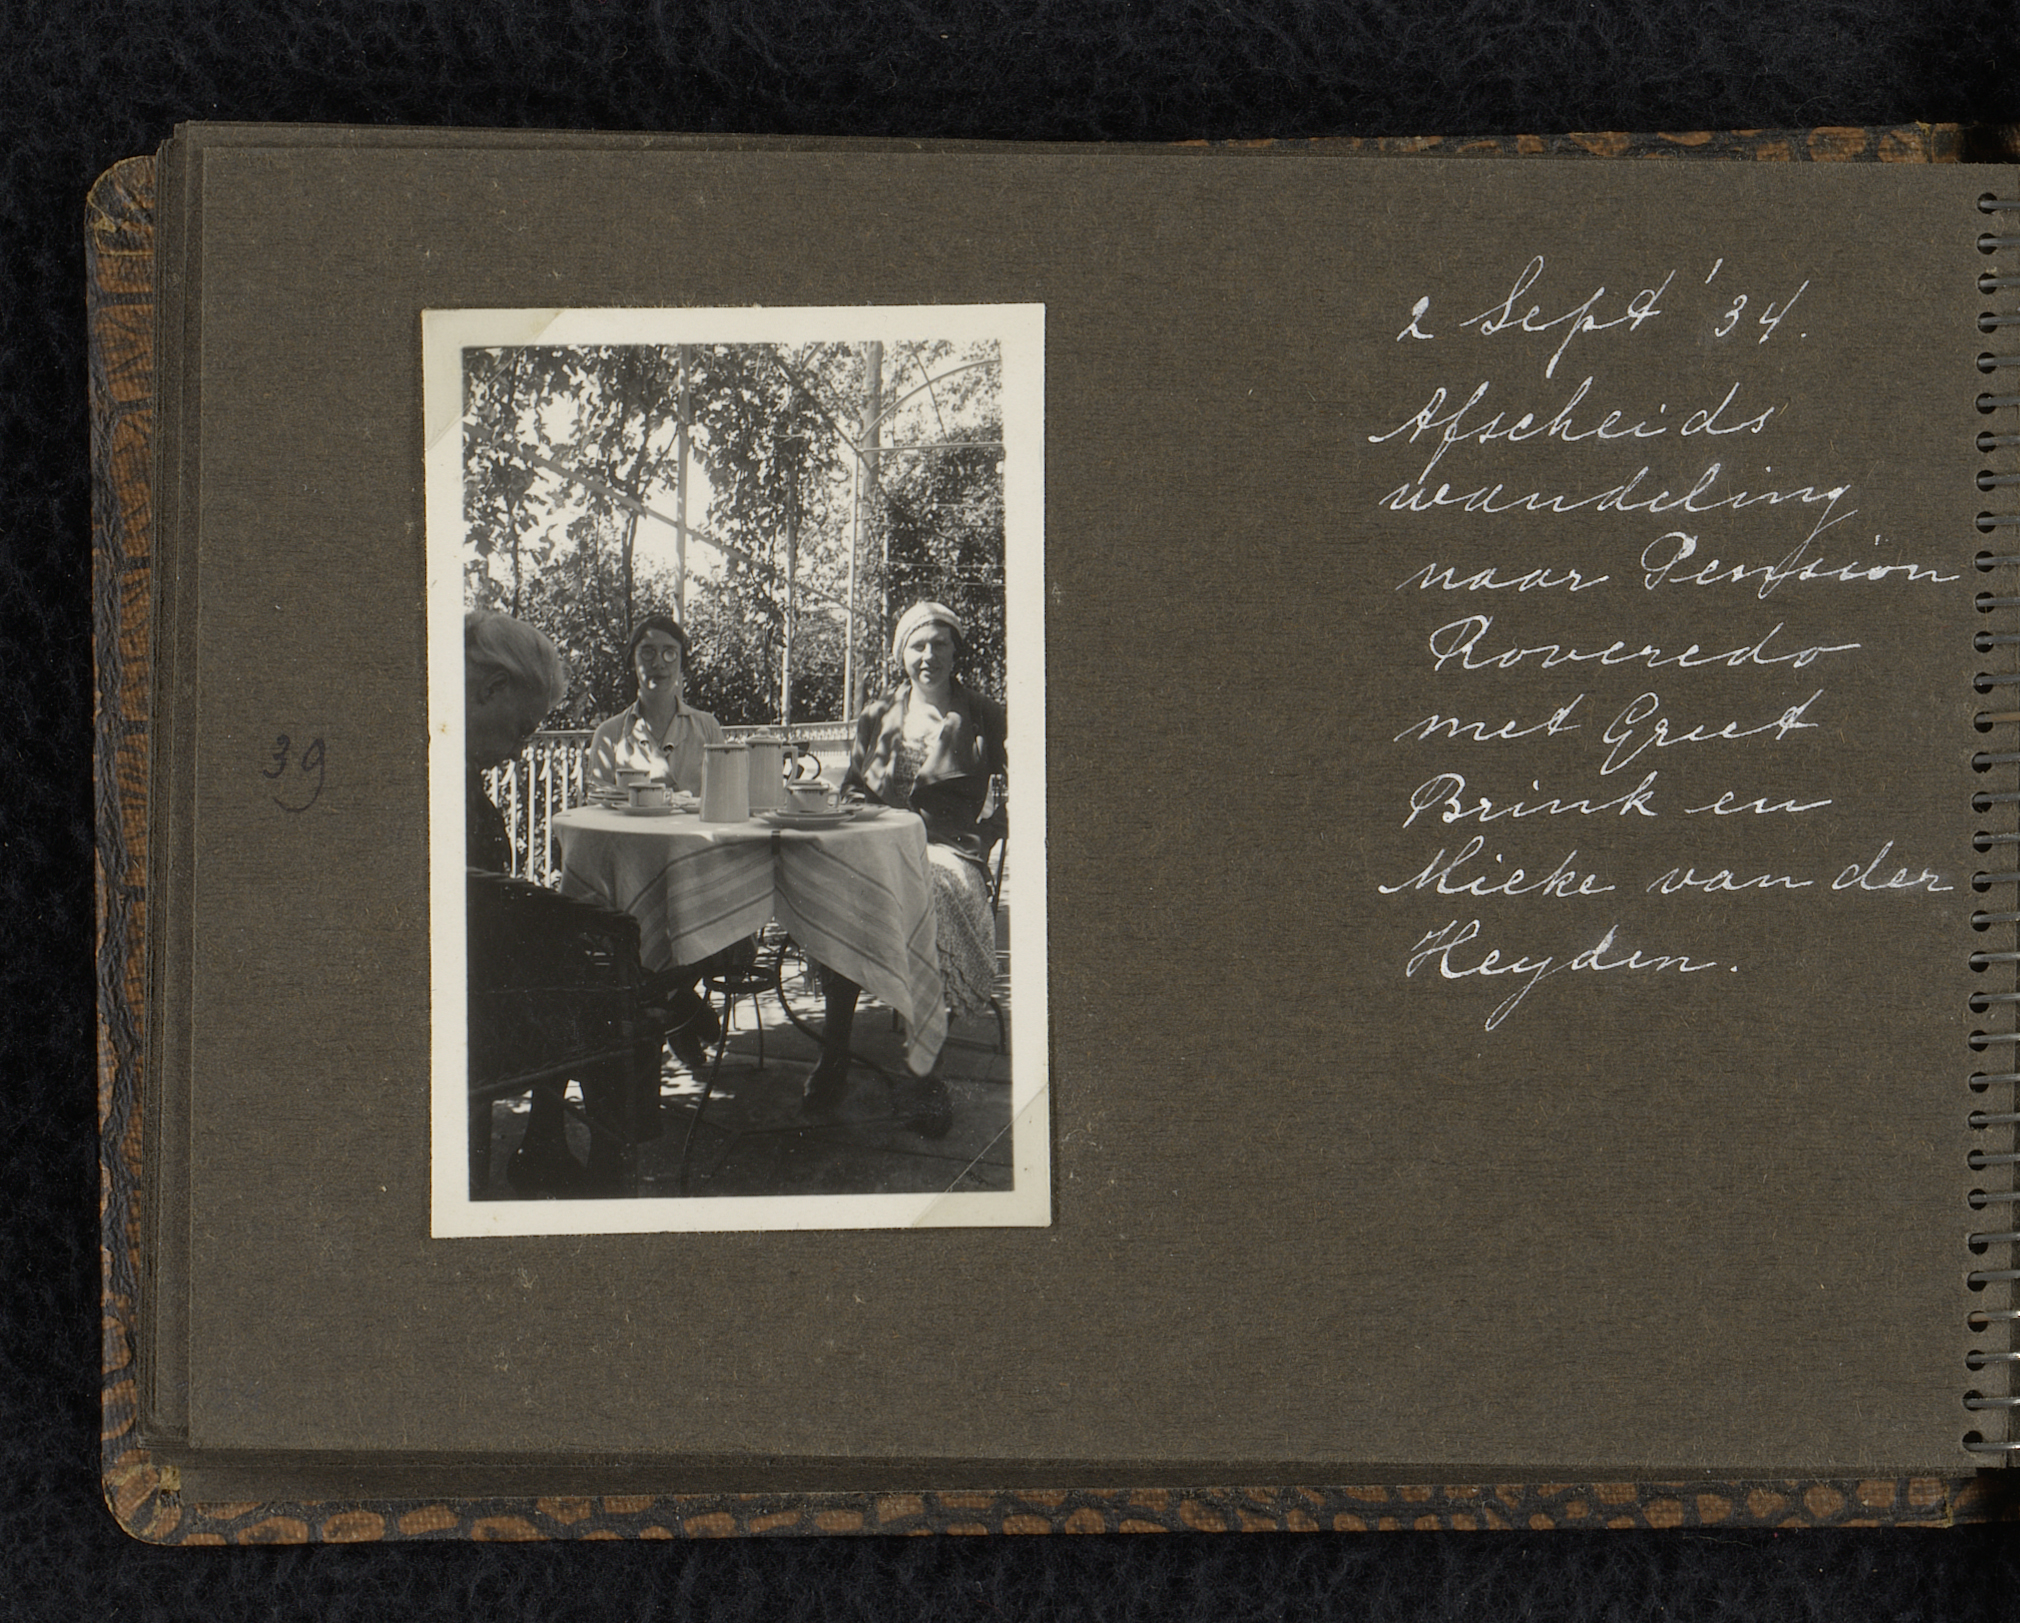 39
2 Sept '34.
Afscheids
wandeling
naar Pension
Roveredo
met Greet
Brink en
Mieke van der
Heyden.